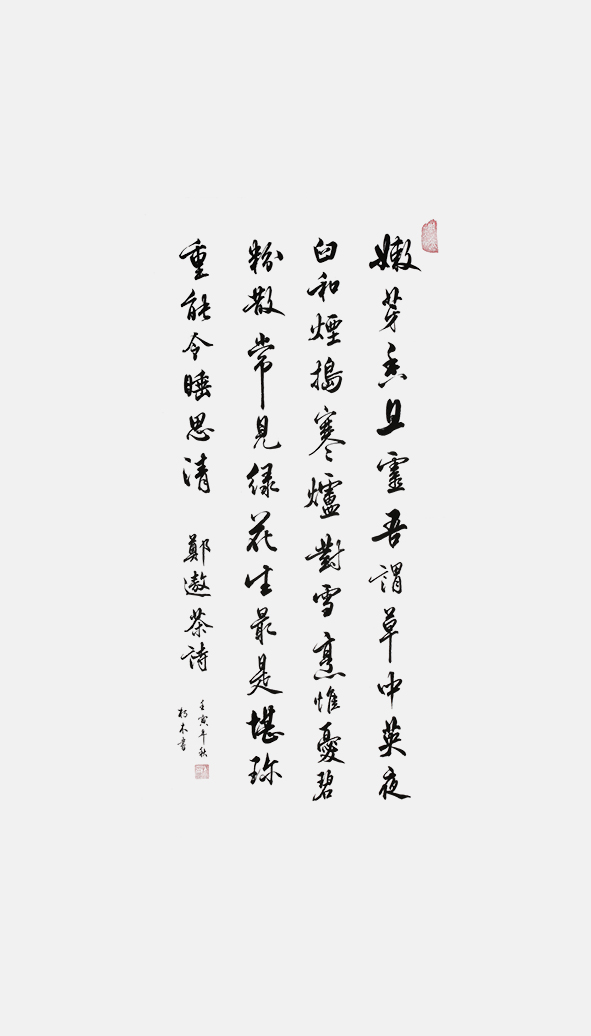 嫩芽香且靈吾謂草中英夜
臼和煙搗寒爐對雪烹惟憂碧
粉散常見绿花生最是堪珍
重能令睡思清
鄭遨茶詩
壬寅年秋
朽木書